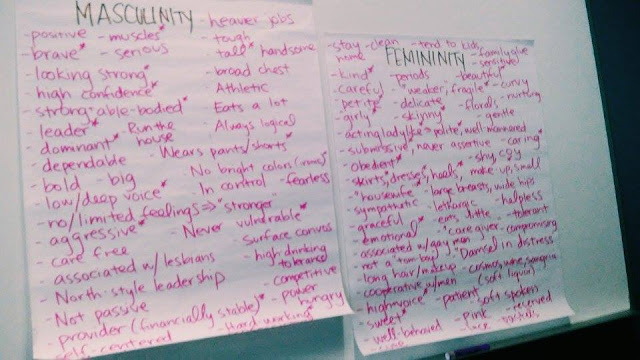 MASCULINITY - heavier jobs
- positive - muscles*
- tough
- brave* - serious
tall* handsome
- looking strong*
- broad chest
- high confidence*
- Athletic
- strong* able-bodied*
- Eats a lot
- leader* - Run the house
- Always logical
- dominant*
- Wears pants/shorts*
- dependable
- No bright colors
- bold - big
- In control - fearless
- low/deep voice*
- no/limited feelings => "stronger
- aggressive* - Never vulnerable*
- care free
- surface convos
- associated w/ lesbians
- high drinking tolerance
- North-style leadership
- competitive
- Not passive
- power hungry
- provider (financially stable)*
- self-centered - Hard working
- stay home - clean - tend to kids
FEMININITY
- family glue
- sensitive
- kind* - periods - beautiful*
- careful - "weaker, fragile* - curvy
- petite* - delicate - florals - nurturing
- girly* - skinny - gentle
- acting ladylike => polite*, well mannered
- submissive, never assertive - caring*
- obedient* - shy, coy
- skirts*, dresses*, heels*, make up, small
- "housewife* - large breasts, wide hips
- sympathetic - lethargic - helpless
- graceful - eats little - tolerant
- emotional* - "care giver - compromising
- associated w/ gay men - "Damsel in distress
- not a "tom boy"
- long hair/makeup - cosmos, wine, sangria
- cooperative w/men (soft liquor)
- high voice* - patient - soft spoken
- sweet* - reserved
- well-behaved - Pink